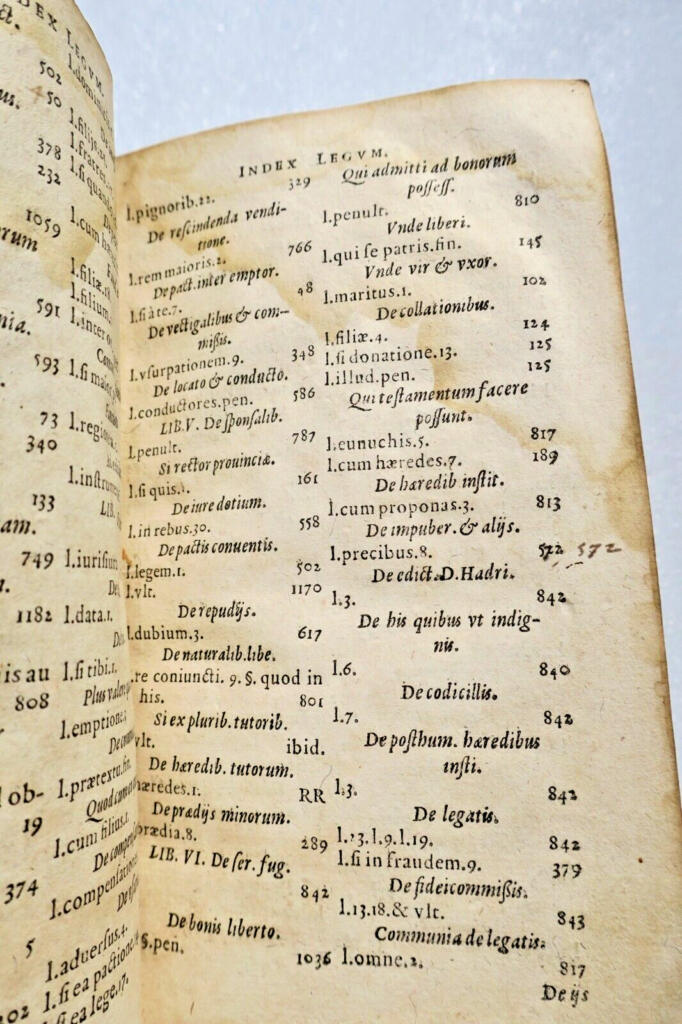 INDEX LEGVM.
502
50
378
232
1059
591
593
73
340
133
749
1182
808
ob-
19
374
5
202
l.fratres
l.si quan
l.cum
l.filiæ.
l.filium.
l.inter
l.regi
l.instru
l.iurisiu
l.data.1.
l.si tibi.1.
l.emptione
l.prætextu.fin.
l.cum filius.1.
l.compensatio
l.aduersus.4.
l.si ea pactione
l.si ea lege.17.
INDEX LEGVM.
l.pignorib.22. 329
De rescindenda vendi-
tione.
l.rem maioris.2. 766
De pact. inter emptor.
l.si a te.7. 48
De vectigalibus & com-
missis.
l.vsurpationem.9. 348
De locato & conducto.
l.conductores.pen. 586
LIB. V. De sponsalib.
l.penult. 787
Si rector prouinciæ.
l.si quis.1. 161
De iure dotium.
l.in rebus.30. 558
De pactis conuentis.
l.legem.1. 502
l.vlt. 1170
De repudijs.
l.dubium.3. 617
De naturalib. libe.
.re coniuncti. 9. §. quod in
his. 801
Si ex plurib. tutorib.
vlt. ibid.
De hæredib. tutorum.
hæredes.1. RR
De prædijs minorum.
prædia.8. 289
LIB. VI. De ser. fug.
842
De bonis liberto.
§.pen. 1036
Qui admitti ad bonorum
possess.
l.penult. 810
Vnde liberi.
l.qui se patris.fin. 145
Vnde vir & vxor.
l.maritus.1. 102
De collationibus.
l.filiæ.4. 124
l.si donatione.13. 125
l.illud.pen. 125
Qui testamentum facere
possunt.
l.eunuchis.5. 817
l.cum hæredes.7. 189
De hæredib instit.
l.cum proponas.3. 813
De impuber. & alijs.
l.precibus.8. 572 572
De edict. D. Hadri.
l.3. 842
De his quibus vt indig-
nis.
l.6. 840
De codicillis.
l.7. 842
De posthum. hæredibus
insti.
l.3. 842
De legatis.
l.13.l.9.l.19. 842
l.si in fraudem.9. 379
De fideicommissis.
l.13.18.& vlt. 843
Communia de legatis.
l.omne.2. 817
De ijs